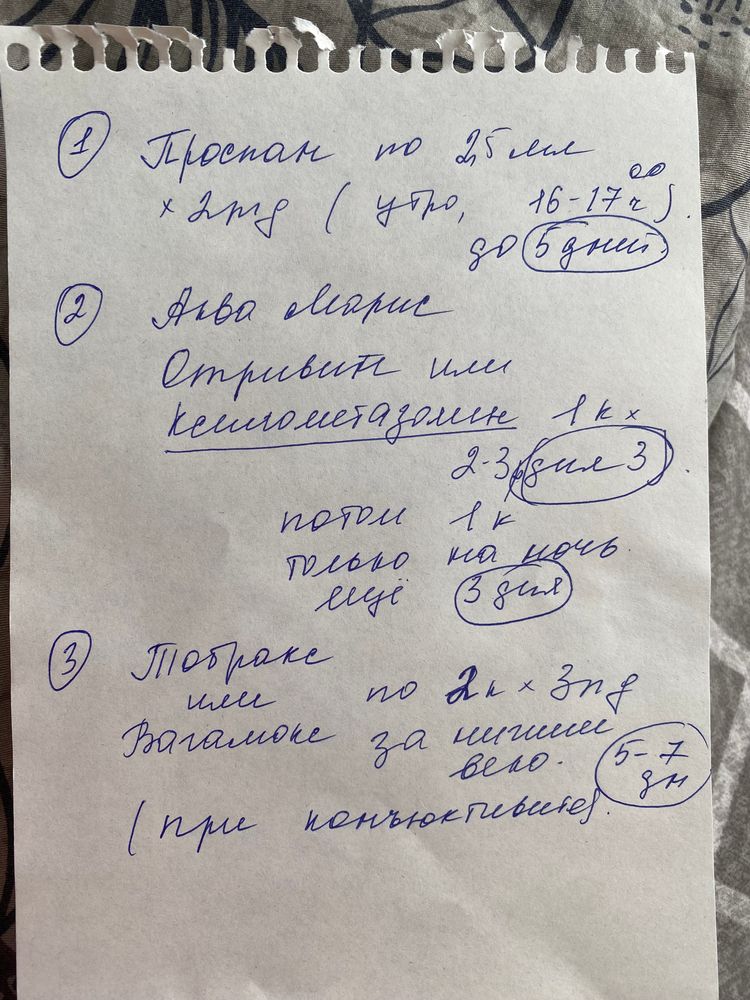 ① Проспан по 2,5 мл
× 2 р/д (утро, 16-17 ч⁰⁰).
до 5 дней.
② Аква Марис
Отривин или
Ксилометазолин 1 к ×
2-3 р/д дня 3.
потом 1 к
только на ночь.
ещё 3 дня
③ Тобракс
или по 2 к × 3 р/д
Вагамокс за нижнее
веко. 5-7
дн
(при конъюктивите).